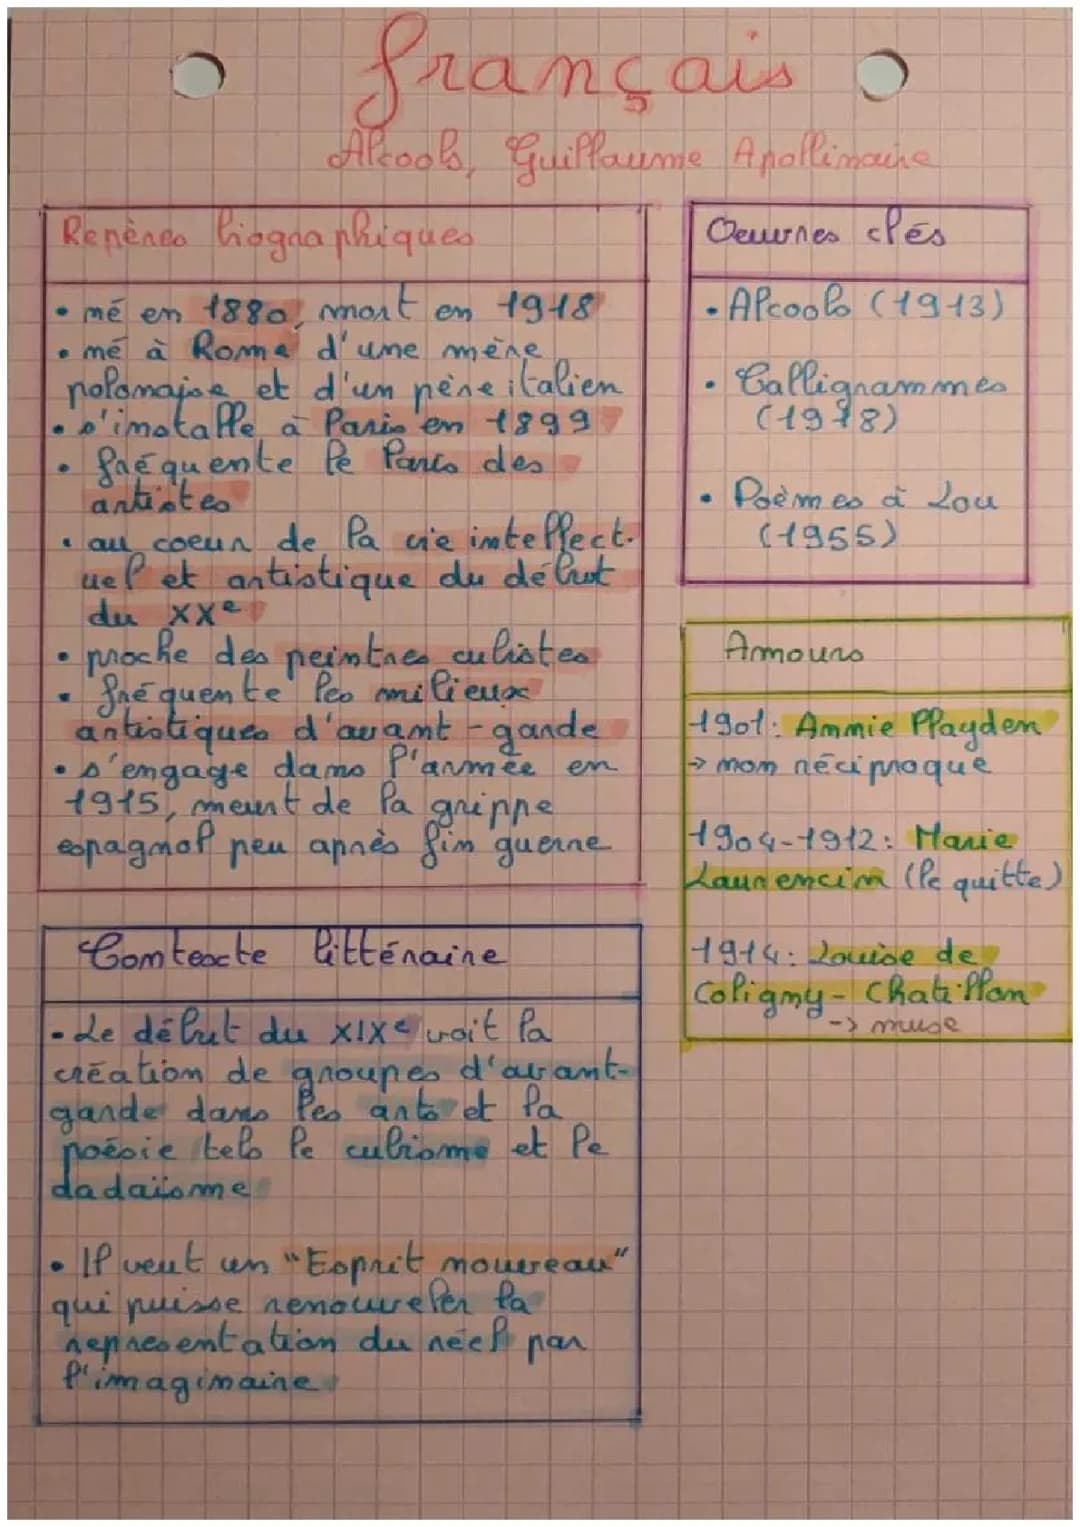 Français
Alcools, Guillaume Apollinaire
Repères biographiques
• né en 1880, mort en 1918
• né à Rome d'une mère
polonaise et d'un père italien
• s'installe à Paris en 1899
• fréquente le Paris des
artistes
• au coeur de la vie intellect-
uel et artistique du début
du XXe
• proche des peintres cubistes
• fréquente les milieux
artistiques d'avant-garde
• s'engage dans l'armée en
1915, meurt de la grippe
espagnol peu après fin guerre
Oeuvres clés
• Alcools (1913)
• Calligrammes
(1918)
• Poèmes à Lou
(1955)
Amours
1901: Annie Playden
→ non réciproque
1904-1912: Marie
Laurencin (le quitte)
1914: Louise de
Coligny-Chatillon
-> muse
Contexte littéraire
• Le début du XIXe voit la
création de groupes d'avant-
garde dans les arts et la
poésie tels le cubisme et le
dadaïsme
• Il veut un "Esprit nouveau"
qui puisse renouveler la
representation du réel par
l'imaginaire